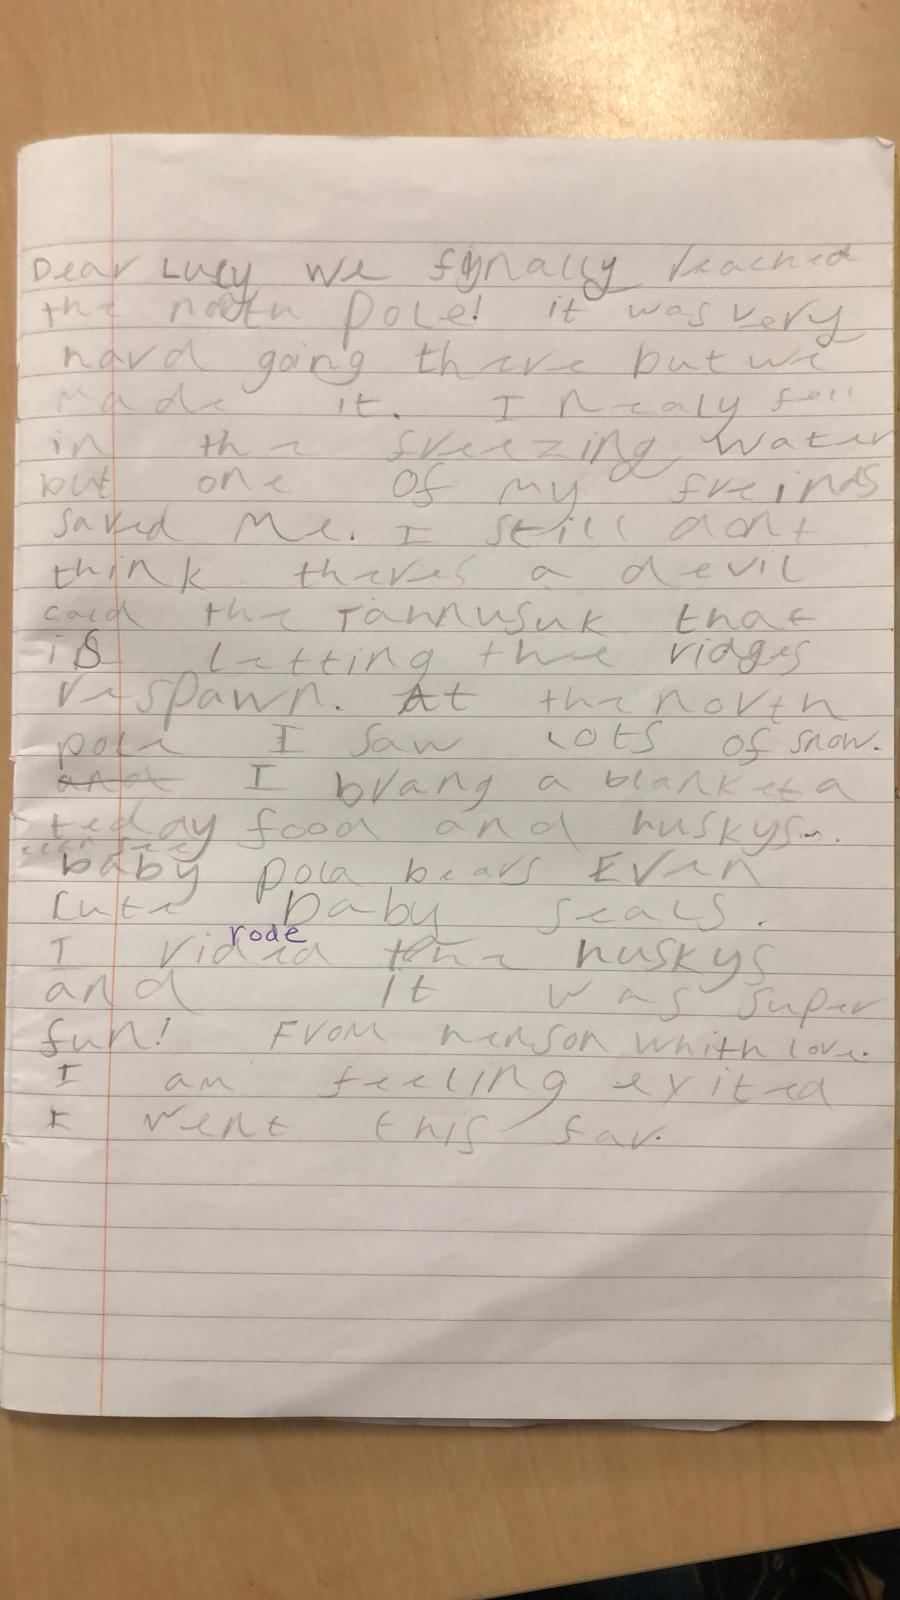 Dear Lucy we fynally reached
the north pole! it was very
hard going there but we
made it. I nealy fell
in the freezing water
but one of my freinds
saved me. I still dont
think theres a devil
cald the Tahnusuk that
is letting the ridges
respawn. At the north
pole I saw lots of snow.
and I brang a blanket a
teday food and huskys.
baby pola bears Even
cute baby seals.
rode
I rided the huskys
and it was super
fun! From henson whith love.
I am feeling exited
I went this far.